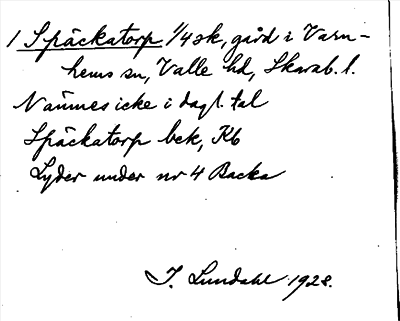 1 Späckatorp 1/4 sk, gård i Varn-
hems sn, Valle hd, Skarab. l.
Nämnes icke i dagl. tal
Späckatorp bek, Kb
Lyder under nr 4 Backa
I. Lundahl 1928.